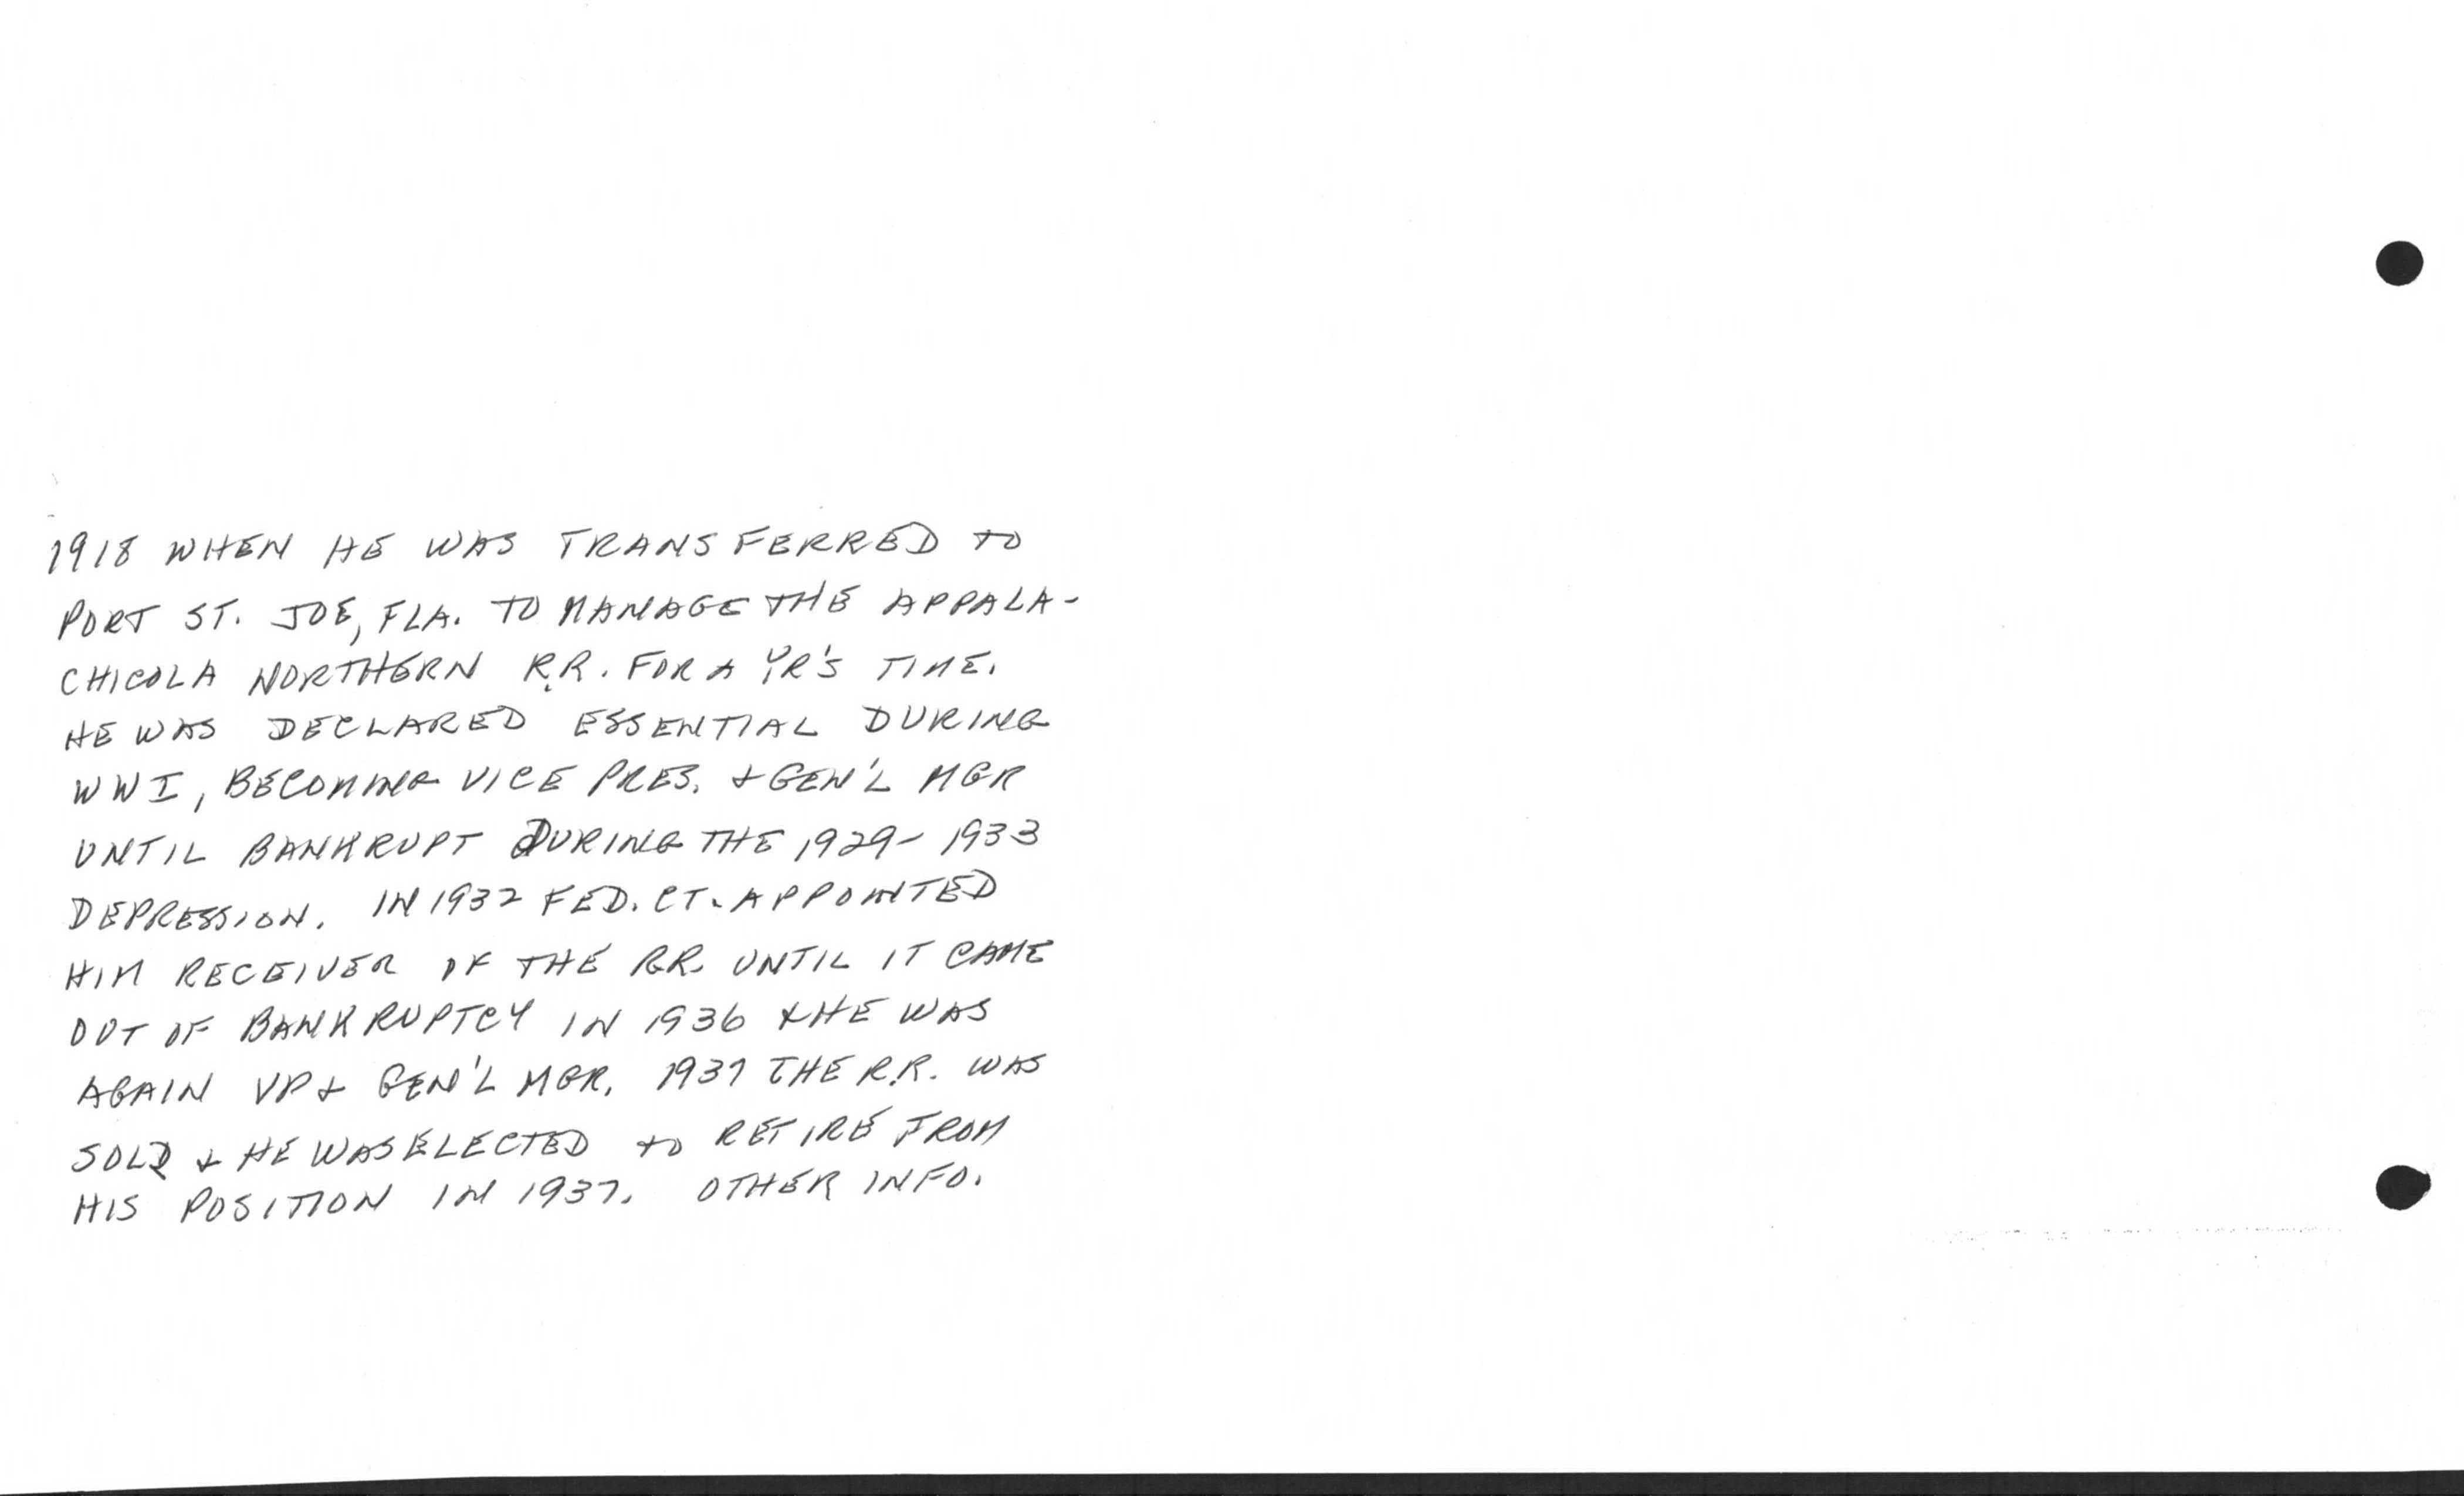 1918 WHEN HE WAS TRANSFERRED TO
PORT ST. JOE, FLA. TO MANAGE THE APPALA-
CHICOLA NORTHERN R.R. FOR A YR'S TIME.
HE WAS DECLARED ESSENTIAL DURING
WWI, BECOMING VICE PRES. & GEN'L MGR
UNTIL BANKRUPT DURING THE 1929-1933
DEPRESSION. IN 1932 FED. CT. APPOINTED
HIM RECEIVER OF THE RR. UNTIL IT CAME
OUT OF BANKRUPTCY IN 1936 & HE WAS
AGAIN VP & GEN'L MGR. 1937 THE R.R. WAS
SOLD & HE WAS ELECTED TO RETIRE FROM
HIS POSITION IN 1937. OTHER INFO.